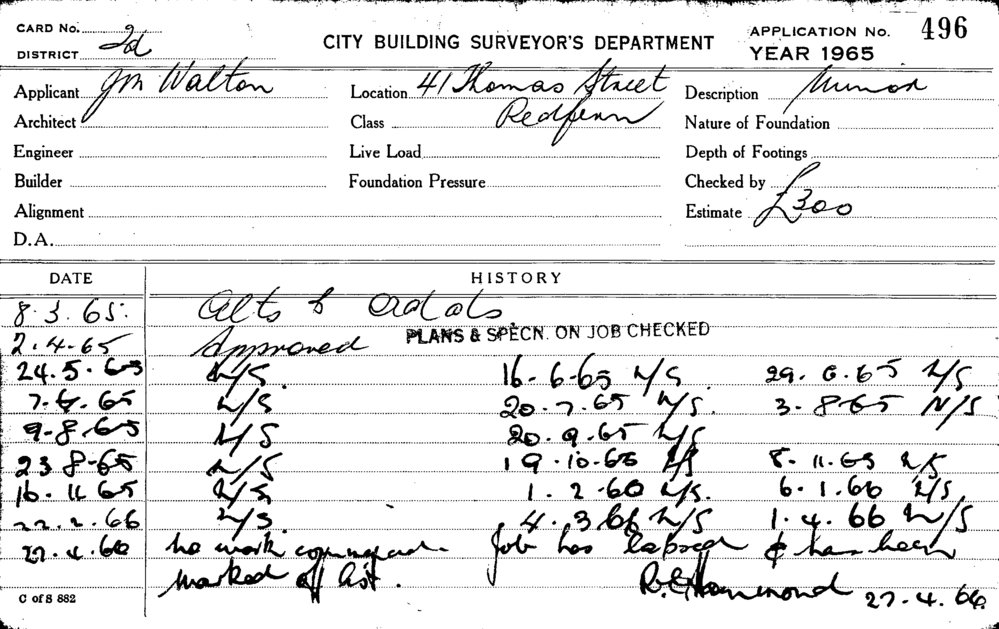 CARD No. 2
DISTRICT 2d
CITY BUILDING SURVEYOR'S DEPARTMENT
APPLICATION No. 496
YEAR 1965
Applicant Jm Walton
Location 41 Thomas Street
Redfern
Description Minor
Architect
Class
Nature of Foundation
Engineer
Live Load
Depth of Footings
Builder
Foundation Pressure
Checked by
Alignment
Estimate £300
D.A.
DATE HISTORY
8.3.65. Alts & Addds
PLANS & SPECN. ON JOB CHECKED
2.4.65 Approved
24.5.65 N/S. 16-6-65 N/S 29.6.65 N/S
7.6.65 N/S 20.7.65 N/S. 3-8-65 N/S
9-8-65 N/S 20.9.65 N/S
23 8-65 N/S 19.10-65 N/S 8.11.65 N/S
16.11.65 N/S 1.2.60 N/S. 6.1.66 N/S
22.2.66 N/S. 4.3.66 N/S 1.4.66 N/S
27.4.66 No work commenced. Job has lapsed & has been
marked off list. R.G. Hammond 27.4.66.
C of S 882